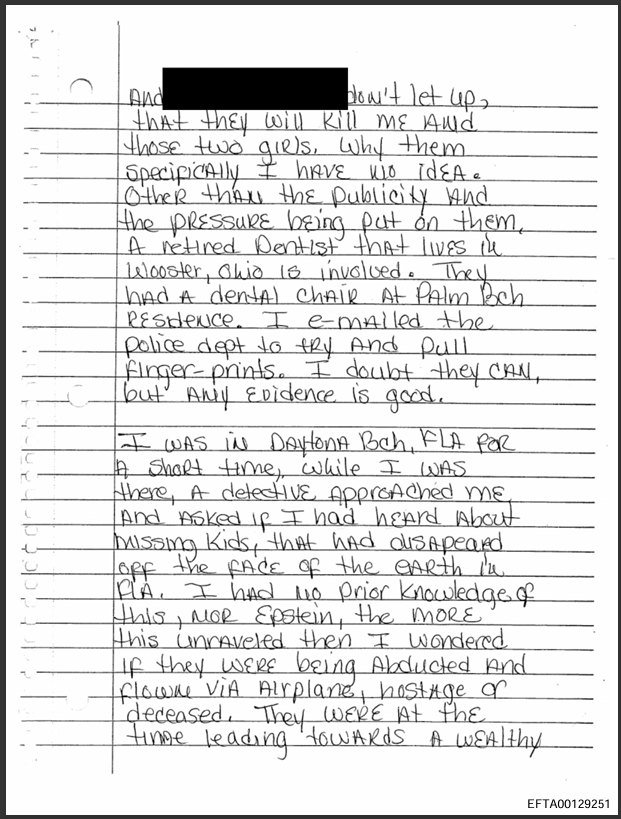 And don't let up,
that they will kill me and
those two girls. Why them
specifically I have no idea.
Other than the publicity and
the pressure being put on them,
A retired Dentist that lives in
Wooster, Ohio is involved. They
had a dental chair at Palm Bch
Residence. I e-mailed the
police dept to try and pull
finger-prints. I doubt they can,
but any evidence is good.
I was in Daytona Bch, FLA for
a short time, while I was
there, a detective approached me
and asked if I had heard about
missing kids, that had disapeard
off the face of the earth in
FLA. I had no prior knowledge of
this, nor Epstein, the more
this unraveled then I wondered
if they were being abducted and
flown via airplane, hostage or
deceased. They were at the
time leading towards a wealthy
EFTA00129251